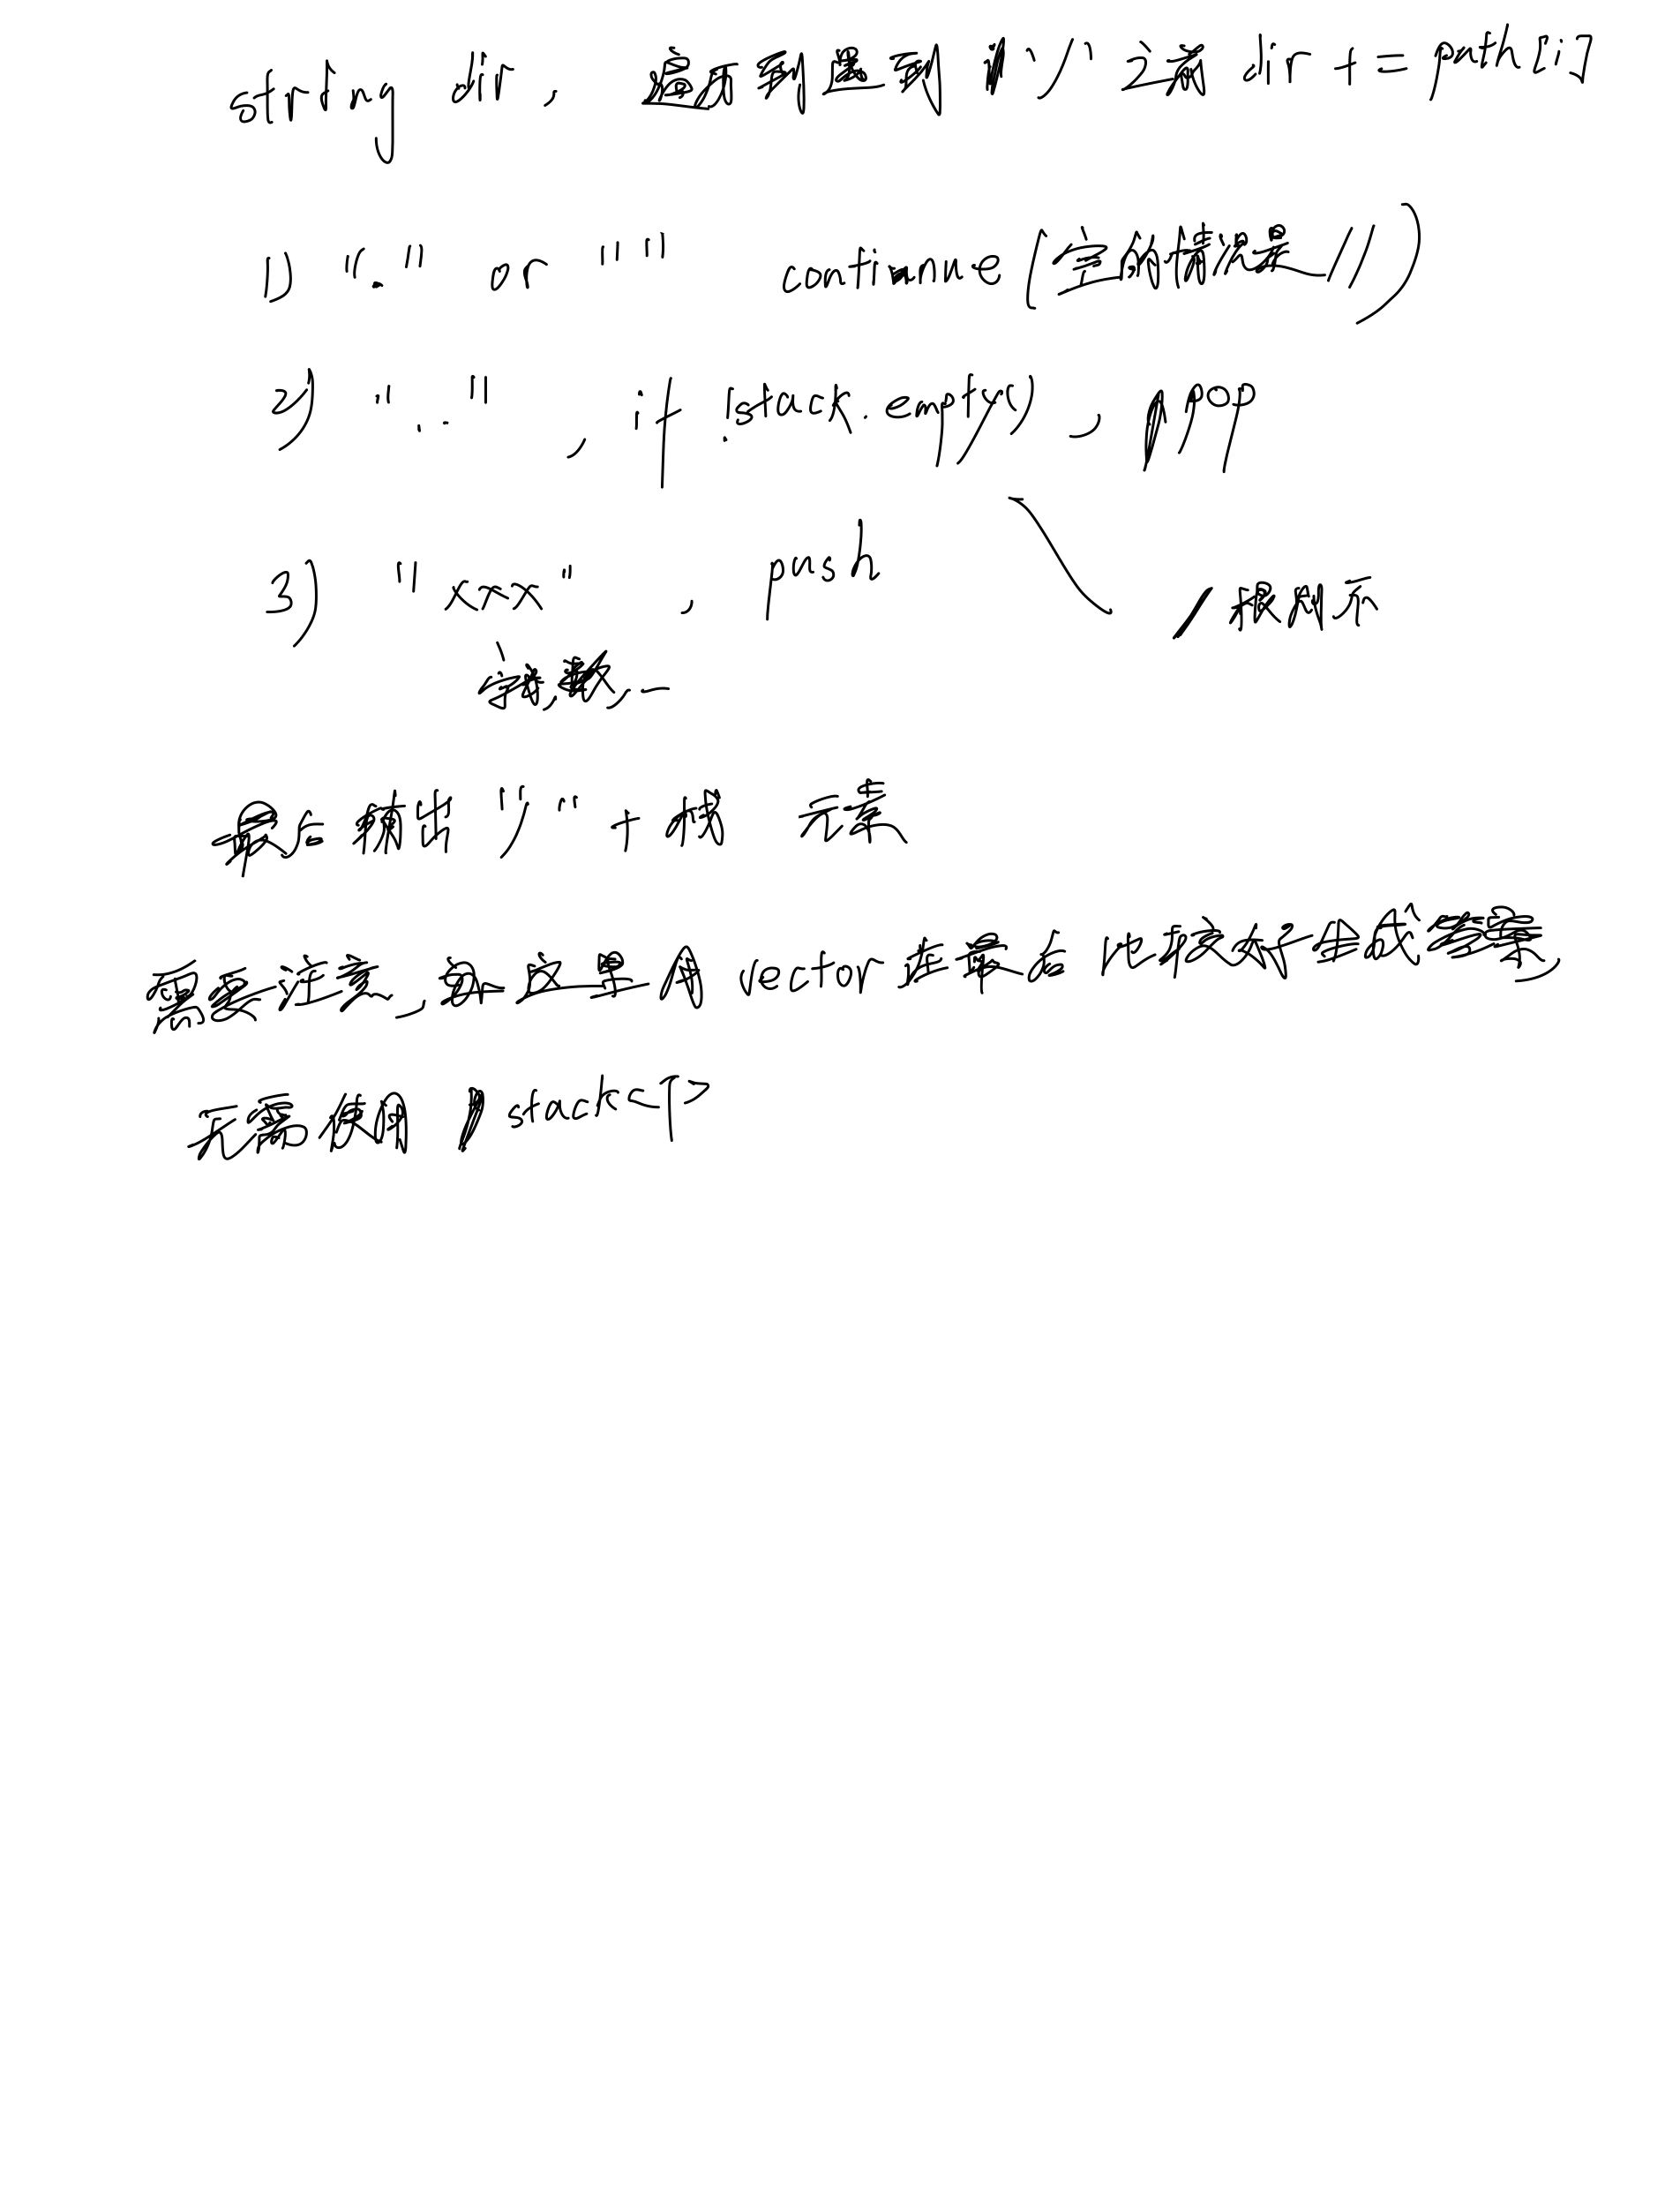 string dir, 遍历到遇到 "/" 之前 dir += path[i]
1) "." or "" continue (空的情况是 //)
2) "..", if !stack.empty), pop
3) "xxx", push
/根目录
字母,数,_
最后输出 "/" + 栈 元素
需要注意,在这里用 vector 在最后比较好生成答案,
无需使用 stack<T>